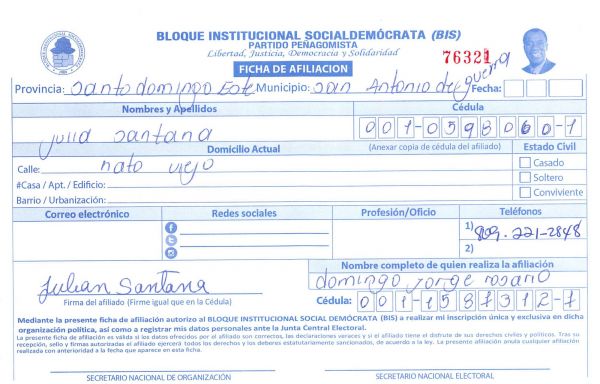 BLOQUE INSTITUCIONAL SOCIALDEMÓCRATA (BIS)
PARTIDO PEÑAGOMISTA
Libertad, Justicia, Democracia y Solidaridad
76321
FICHA DE AFILIACION
Provincia: Santo domingo Este Municipio: San Antonio de guerra Fecha:
Nombres y Apellidos Cédula
Julia santana 001-0598060-1
Domicilio Actual (Anexar copia de cédula del afiliado) Estado Civil
Calle: hato viejo Casado
#Casa / Apt. / Edificio: Soltero
Barrio / Urbanización: Conviviente
Correo electrónico Redes sociales Profesión/Oficio Teléfonos
1) 809-221-2848
2)
Nombre completo de quien realiza la afiliación
Julian Santana domingo Jorge rosario
Firma del afiliado (Firme igual que en la Cédula) Cédula: 001-1581312-7
Mediante la presente ficha de afiliación autorizo al BLOQUE INSTITUCIONAL SOCIAL DEMÓCRATA (BIS) a realizar mi inscripción única y exclusiva en dicha
organización política, así como a registrar mis datos personales ante la Junta Central Electoral.
La presente ficha de afiliación es válida si los datos ofrecidos por el afiliado son correctos, las declaraciones veraces y si el afiliado tiene el disfrute de sus derechos civiles y políticos. Tras su
recepción, sello y firmas autorizadas el afiliado ejercerá todos los derechos y los deberes estatutariamente sancionados, de acuerdo a la ley. La presente afiliación anula cualquier afiliación
realizada con anterioridad a la fecha que aparece en esta ficha.
SECRETARIO NACIONAL DE ORGANIZACIÓN SECRETARIO NACIONAL ELECTORAL